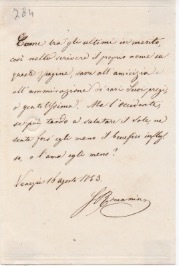 284
Come tra gli ultimi in merito,
così nello scrivere il proprio nome su
queste pagine, sarà all'amicizia e
all'ammirazione di rari Suoi pregi,
o gentilissima! Ma l'Occidente,
se più tardo a salutare il Sole, ne
sente forse egli meno il benefico influsso,
o l'ama egli meno?
Venezia 16 agosto 1853.